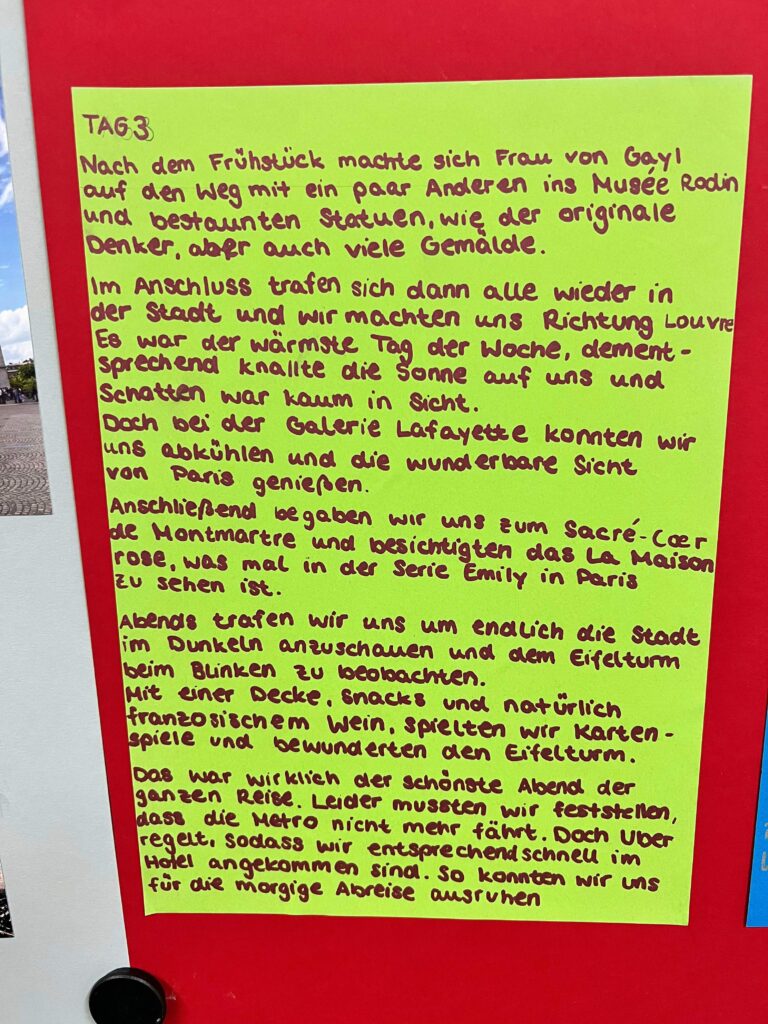 TAG 3
Nach dem Frühstück machte sich Frau von Gayl
auf den Weg mit ein paar Anderen ins Musée Rodin
und bestaunten Statuen, wie der originale
Denker, aber auch viele Gemälde.
Im Anschluss trafen sich dann alle wieder in
der Stadt und wir machten uns Richtung Louvre
Es war der wärmste Tag der Woche, dement-
sprechend knallte die Sonne auf uns und
Schatten war kaum in Sicht.
Doch bei der Galerie Lafayette konnten wir
uns abkühlen und die wunderbare Sicht
von Paris genießen.
Anschließend begaben wir uns zum Sacré-Cœr
de Montmartre und besichtigten das La Maison
rose, was mal in der Serie Emily in Paris
zu sehen ist.
Abends trafen wir uns um endlich die Stadt
im Dunkeln anzuschauen und dem Eifelturm
beim Blinken zu beobachten.
Mit einer Decke, Snacks und natürlich
französischem Wein, spielten wir Karten-
spiele und bewunderten den Eifelturm.
Das war wirklich der schönste Abend der
ganzen Reise. Leider mussten wir feststellen,
dass die Metro nicht mehr fährt. Doch Uber
regelt, sodass wir entsprechend schnell im
Hotel angekommen sind. So konnten wir uns
für die morgige Abreise ausruhen